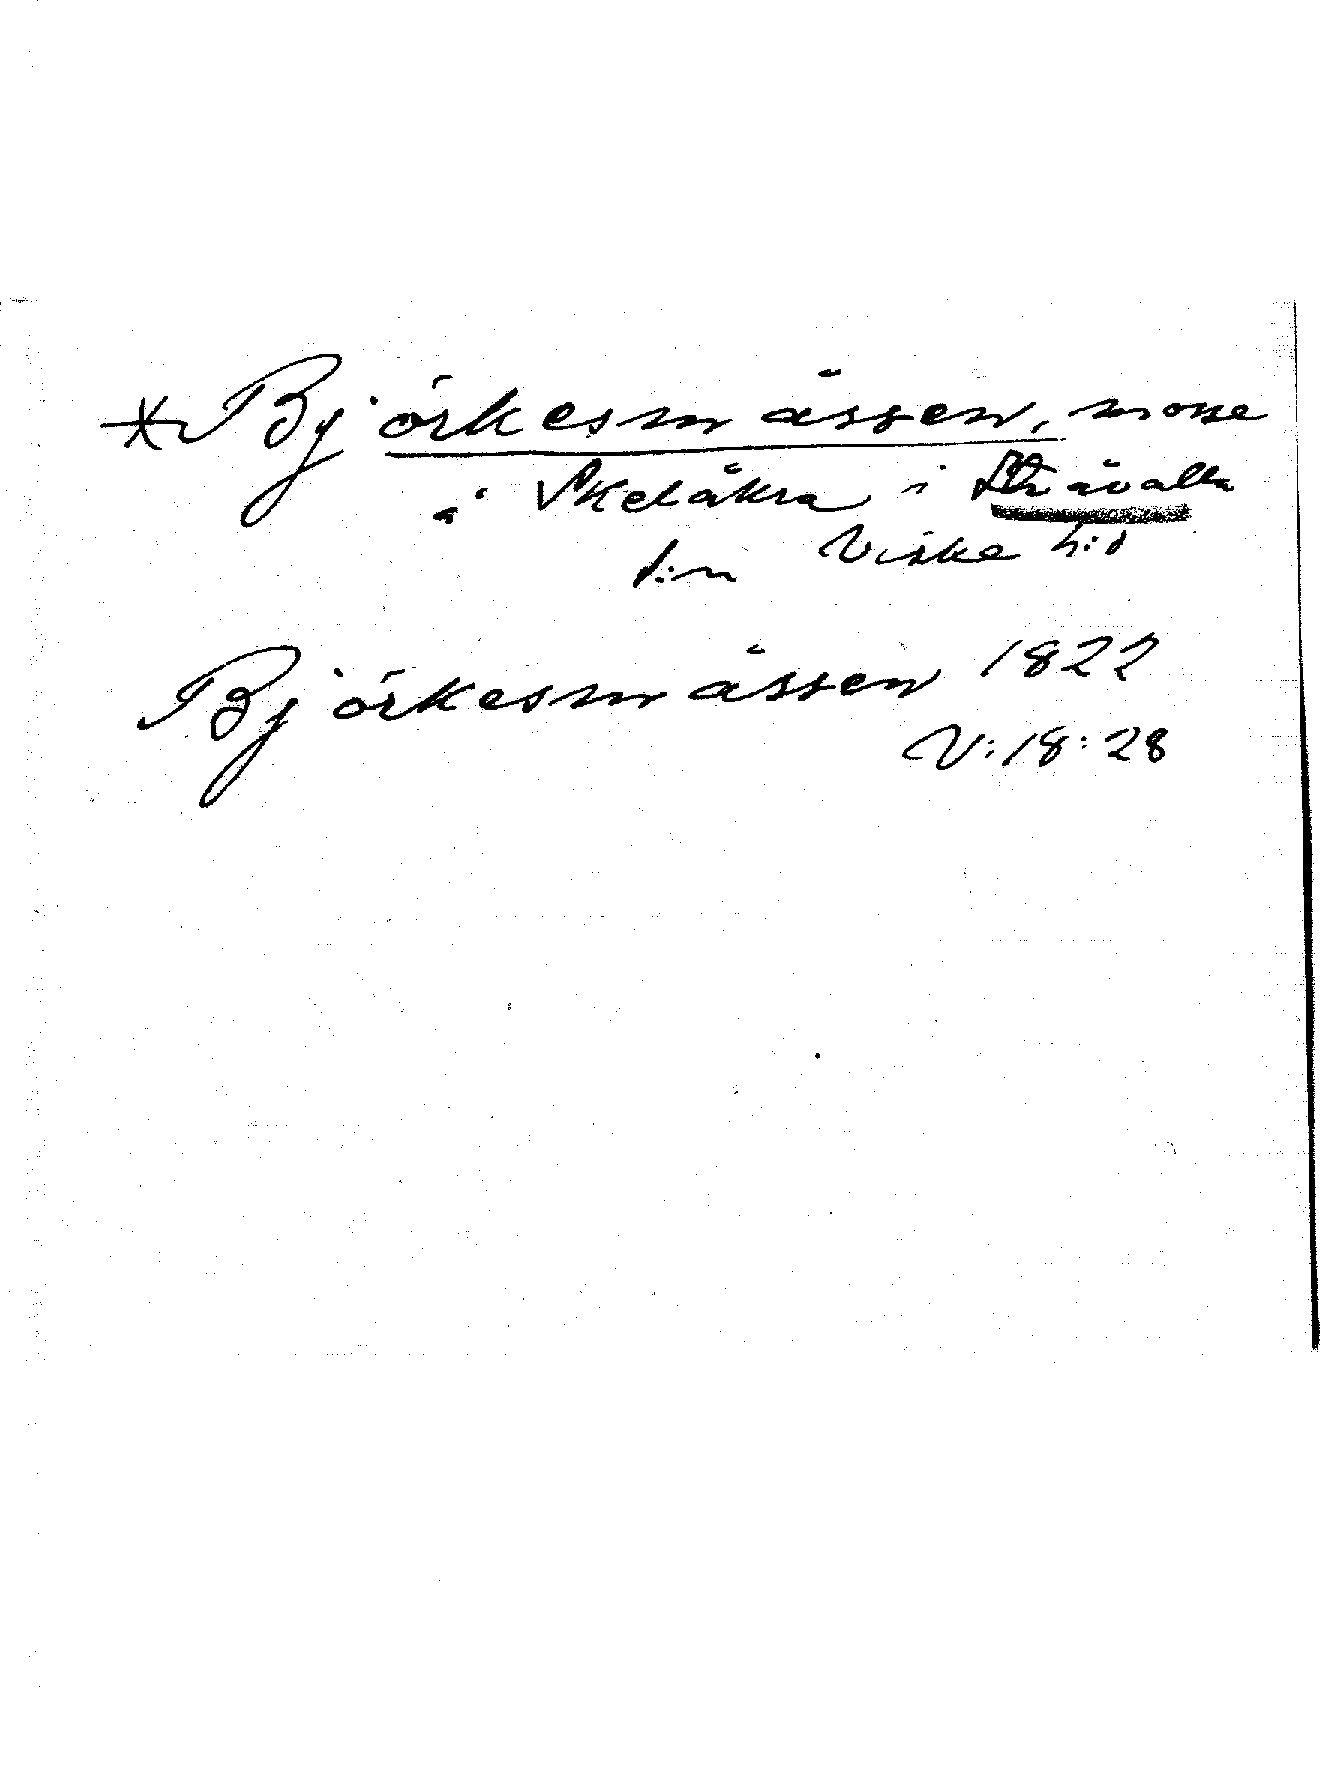 * Björkesmåssen, mosse
å Skedåkra i Stråvalla
s:n Viske h:d
Björkesmåssen 1822
V:18:28